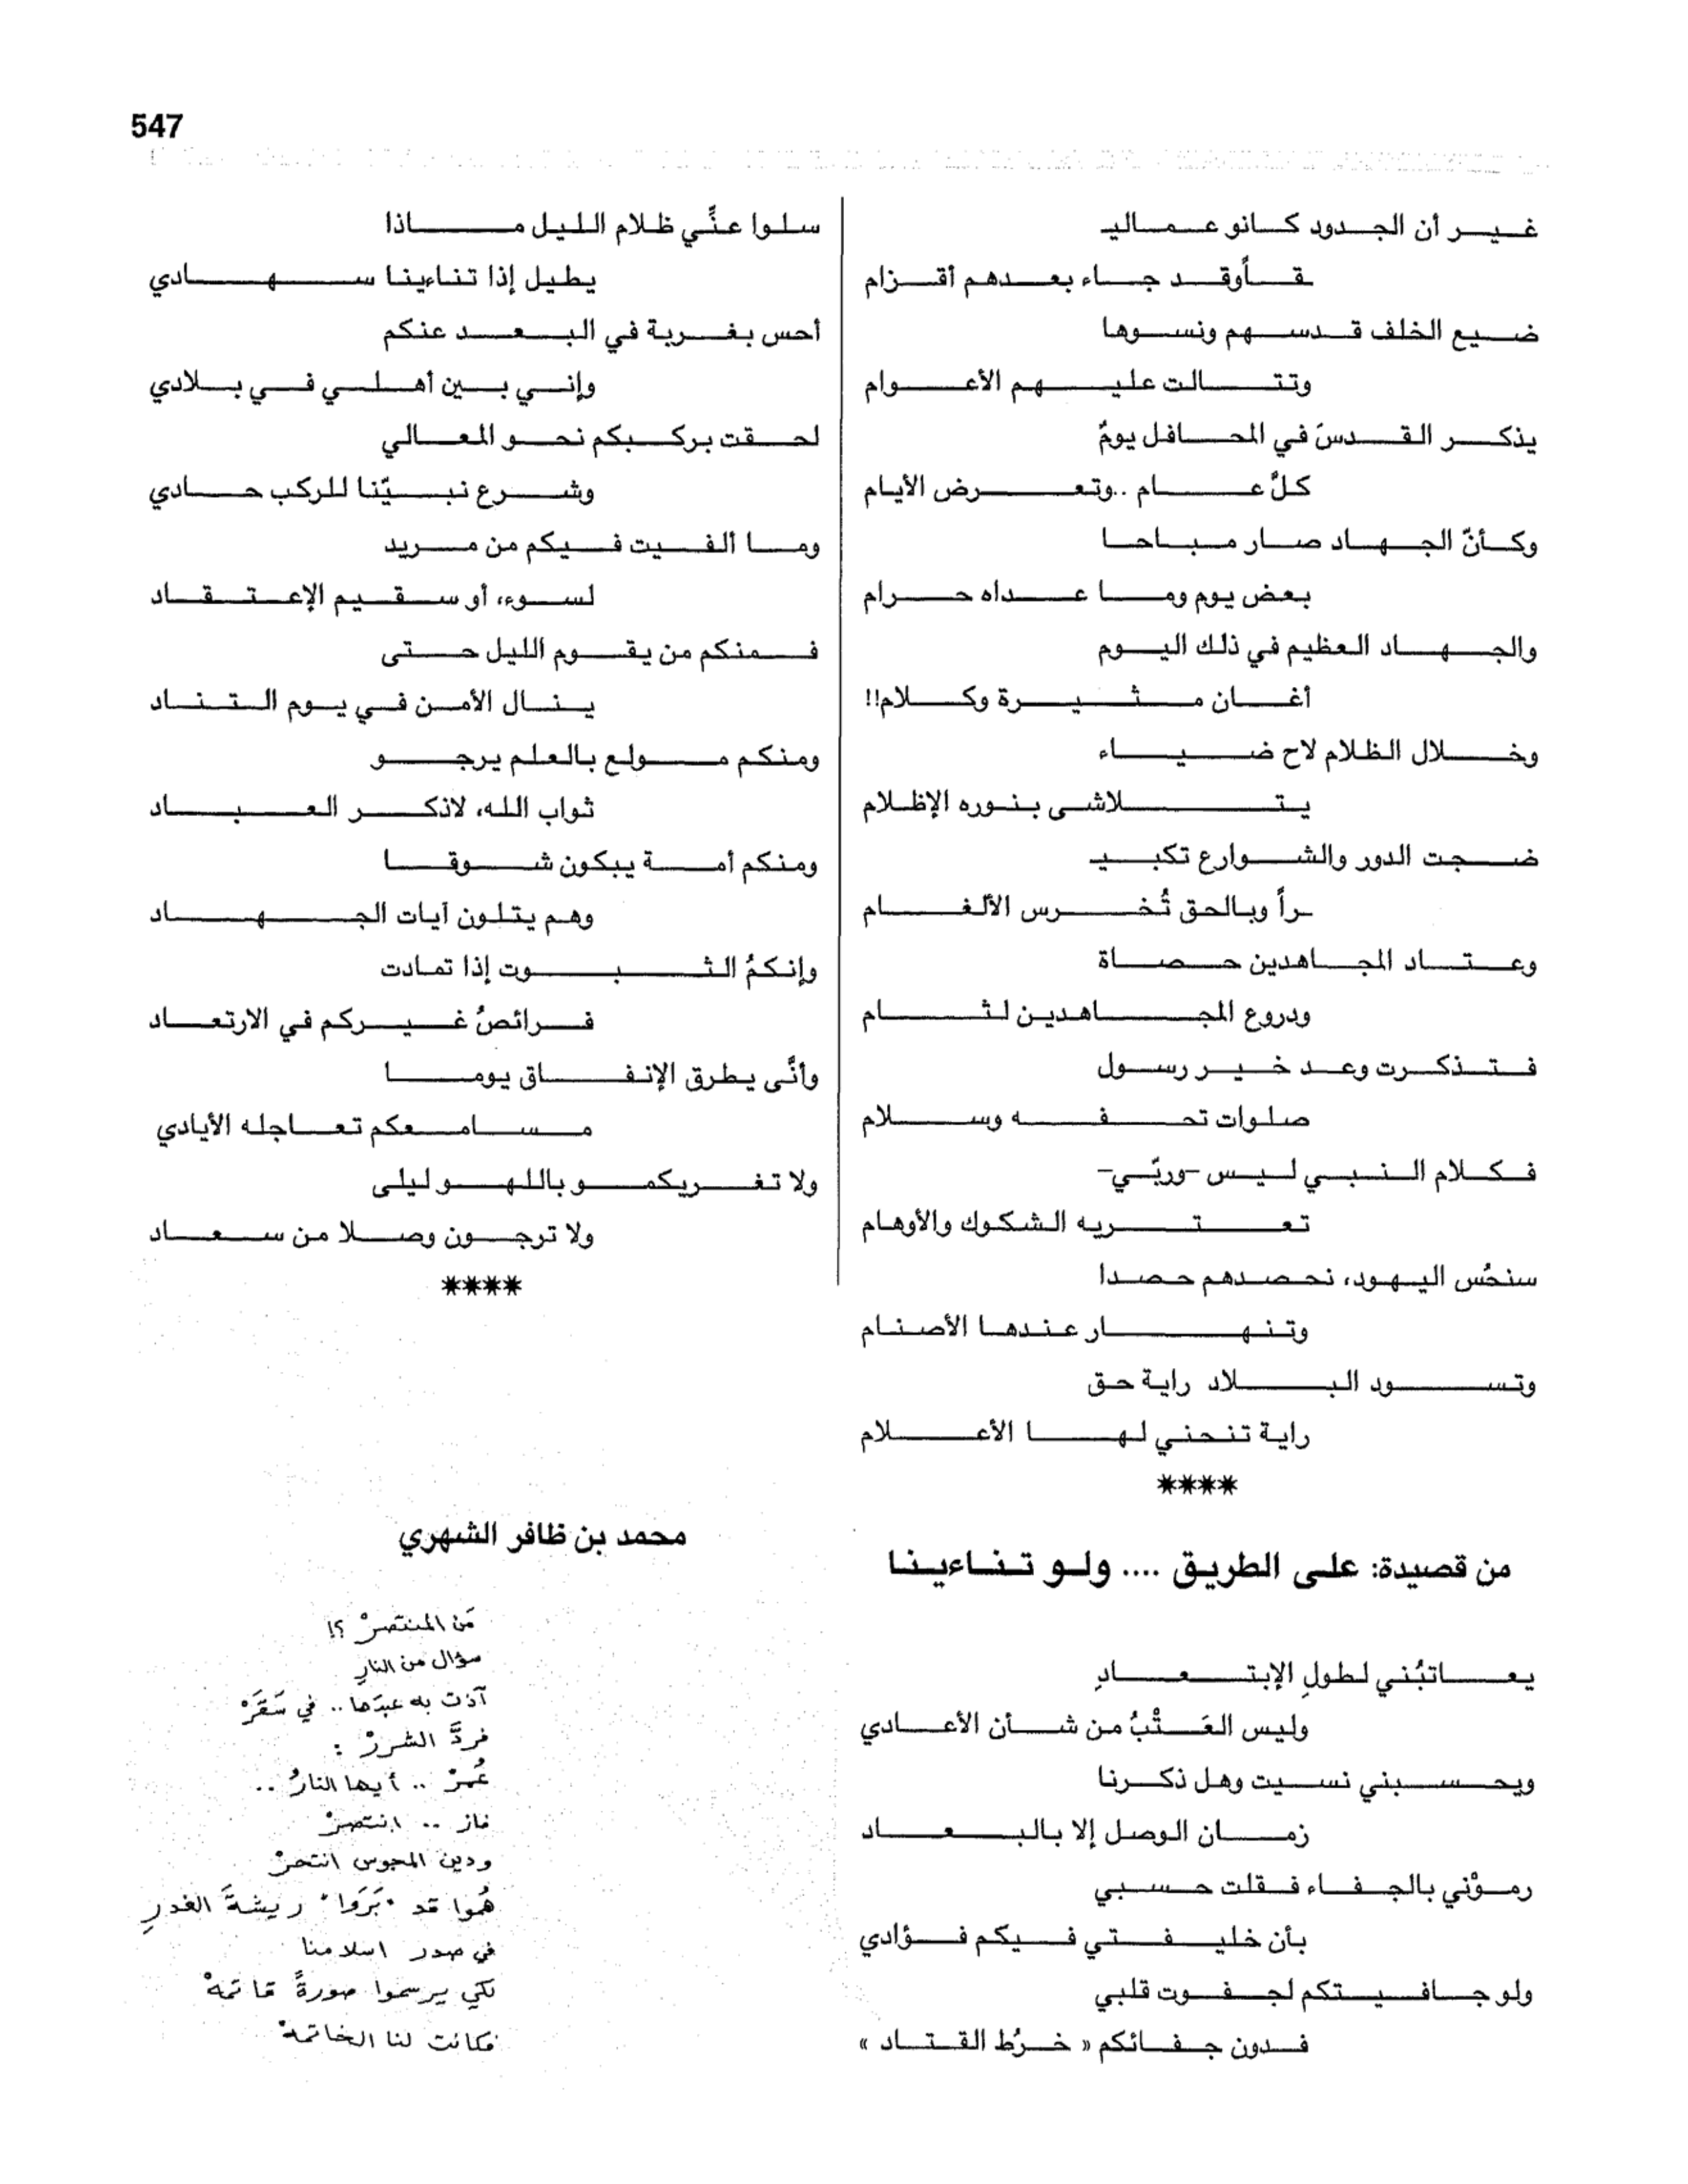 547
غير أن الجدود كانو عماليـ
ـقاًوقد جاء بعدهم أقزام
ضيع الخلف قدسهم ونسوها
وتتالت عليهم الأعوام
يذكر القدسَ في المحافل يومٌ
كلَّ عام ..وتعرض الأيام
وكأنّ الجهاد صار مباحا
بعض يوم وما عداه حرام
والجهاد العظيم في ذلك اليوم
أغان مثيرة وكلام!!
وخلال الظلام لاح ضياء
يتلاشى بنوره الإظلام
ضجت الدور والشوارع تكبيـ
ـراً وبالحق تُخرس الألغام
وعتاد المجاهدين حصاة
ودروع المجاهدين لثام
فتذكرت وعد خير رسول
صلوات تحفه وسلام
فكلام النبي ليس -وربّي-
تعتريه الشكوك والأوهام
سنحُس اليهود، نحصدهم حصدا
وتنهار عندها الأصنام
وتسود البلاد راية حق
راية تنحني لها الأعلام
****
من قصيدة: على الطريق .... ولو تناءينا
يعاتبُني لطولِ الإبتعادِ
وليس العَتْبُ من شأن الأعادي
ويحسبني نسيت وهل ذكرنا
زمان الوصل إلا بالبعاد
رموْني بالجفاء فقلت حسبي
بأن خليفتي فيكم فؤادي
ولو جافيتكم لجفوت قلبي
فدون جفائكم « خرْط القتاد »
سلوا عنِّي ظلام الليل ماذا
يطيل إذا تناءينا سهادي
أحس بغربة في البعد عنكم
وإني بين أهلي في بلادي
لحقت بركبكم نحو المعالي
وشرع نبيّنا للركب حادي
وما ألفيت فيكم من مريد
لسوء، أو سقيم الإعتقاد
فمنكم من يقوم الليل حتى
ينال الأمن في يوم التناد
ومنكم مولع بالعلم يرجو
ثواب الله، لاذكر العباد
ومنكم أمة يبكون شوقا
وهم يتلون آيات الجهاد
وإنكمُ الثبوت إذا تمادت
فرائصُ غيركم في الارتعاد
وأنَّى يطرق الإنفاق يوما
مسامعكم تعاجله الأيادي
ولا تغريكمو باللهو ليلى
ولا ترجون وصلا من سعاد
****
محمد بن ظافر الشهري
مَن المنتصرْ ؟!
سؤال من النارِ
آذت به عبدَها .. في سَقَرْ
فردَّ الشررْ :
عُمرْ .. أيها النارُ ..
فاز .. انتصرْ
ودين المجوس انتحرْ
هُموا قد "بَرَوا" ريشةَ الغدرِ
في صدر اسلامنا
لكي يرسموا صورةً قاتمهْ
فكانت لنا الخاتمهْ